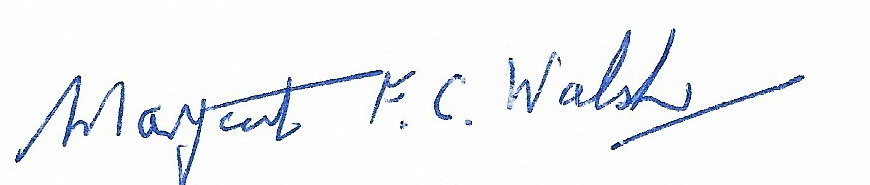 Margaret F. C. Walsh